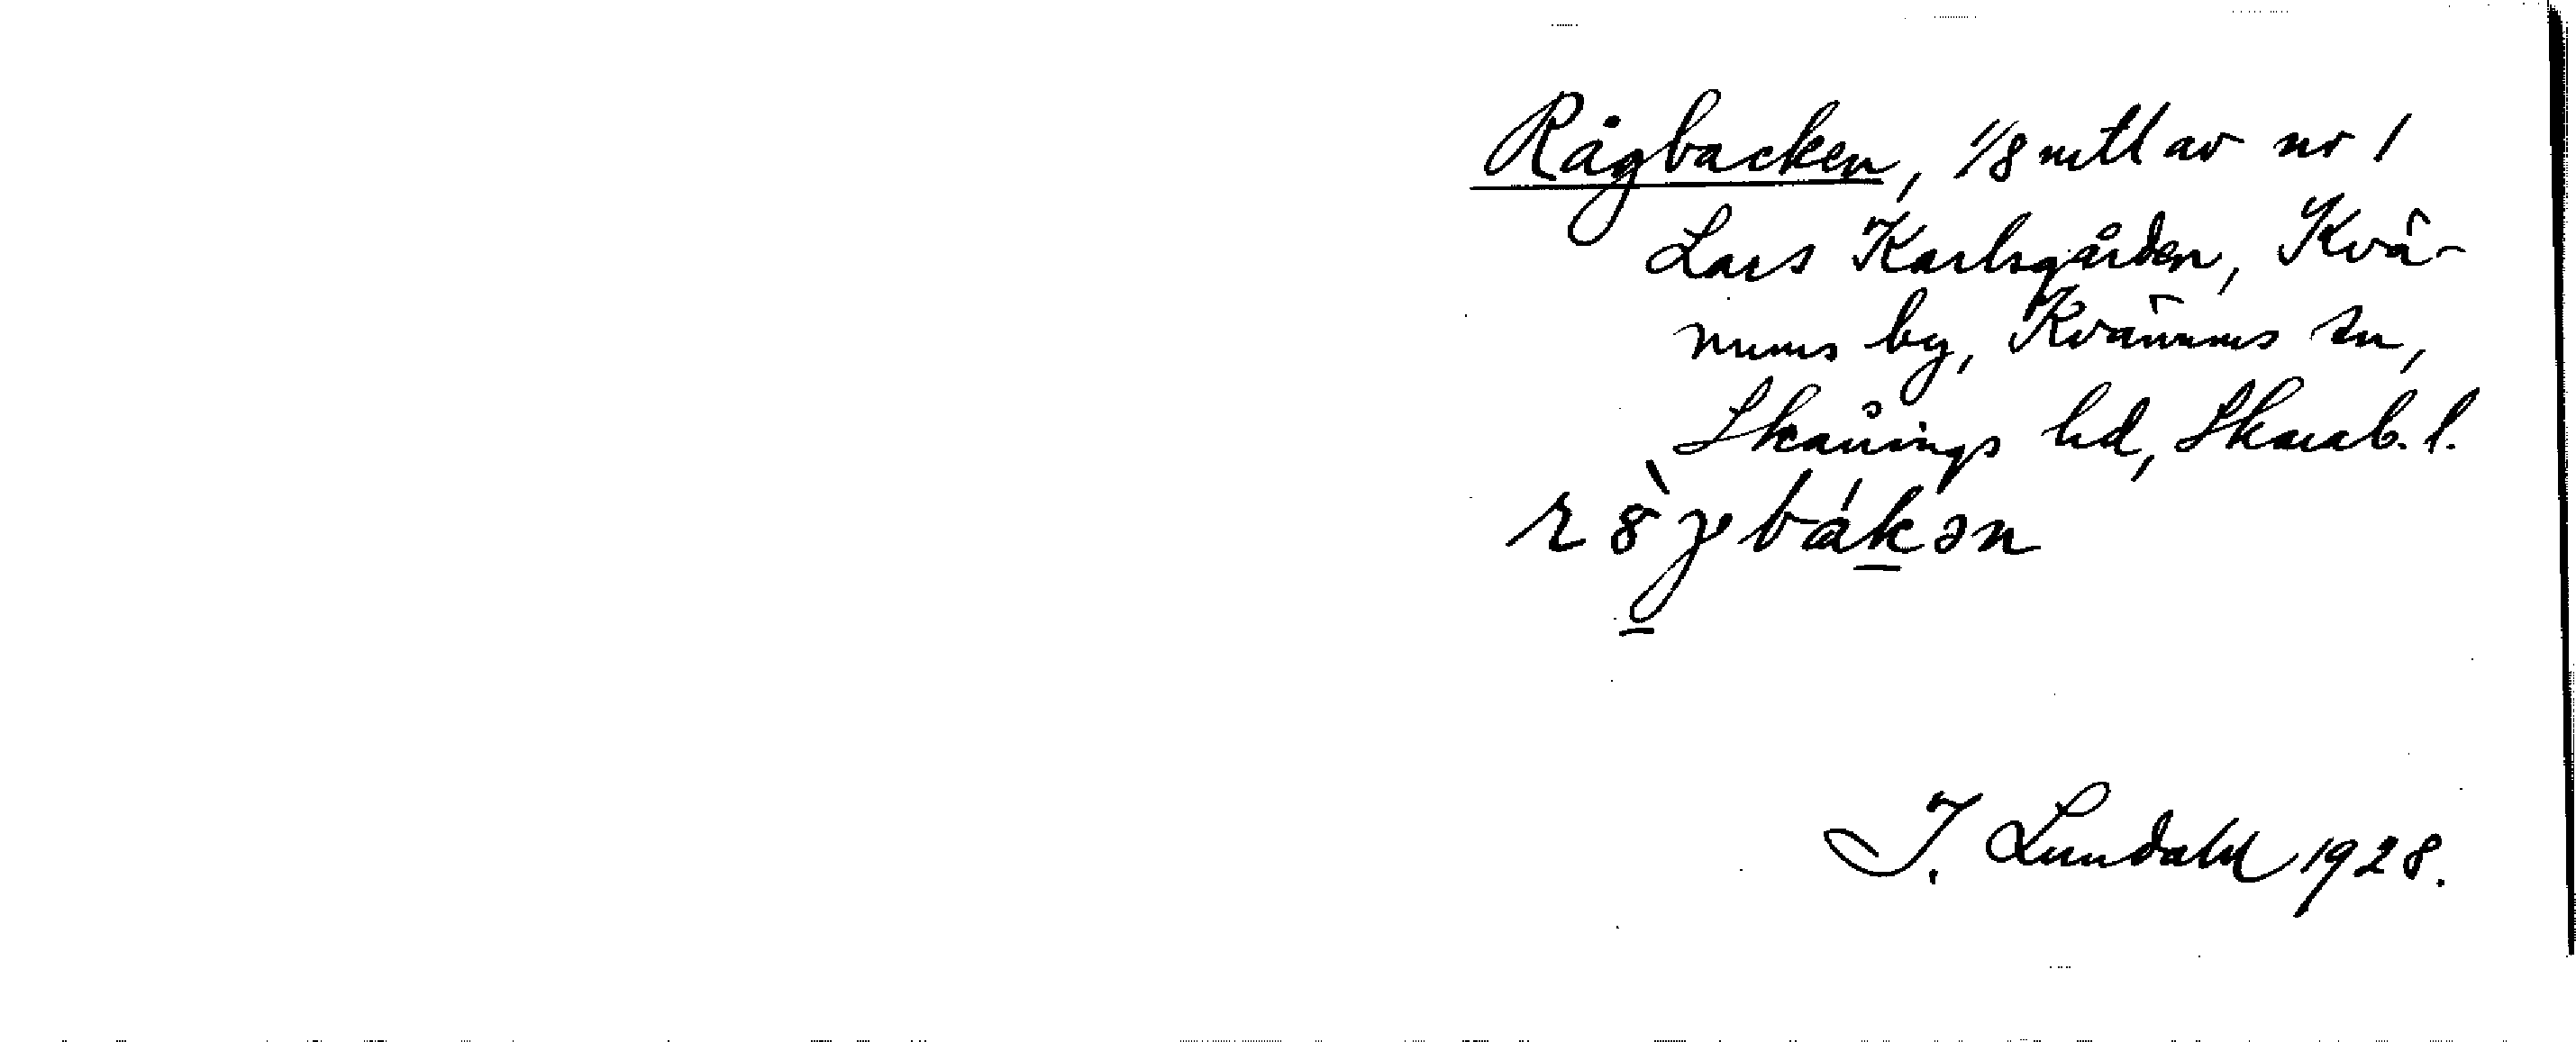 Rågbacken, 1/8 mtl av nr 1
Lars Karlsgården, Kvä-
nums by, Kvänums sn,
Skånings hd, Skarab. l.
r8̀ɡbákən
I. Lundahl 1928.